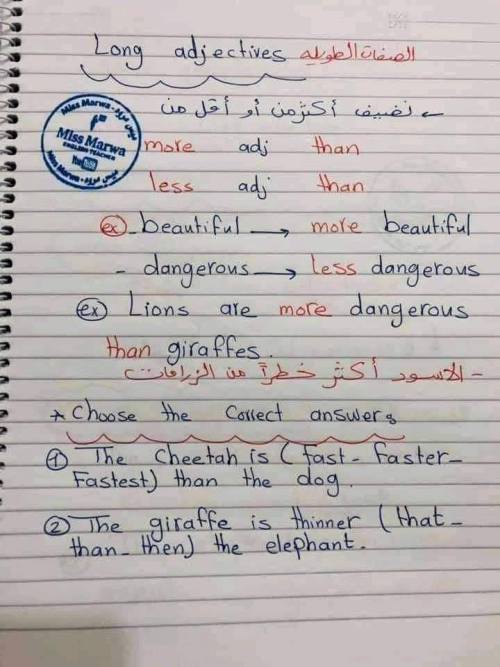 Long adjectives الصفات الطويله
← نضيف أكثر من أو أقل من
Miss Marwa - ميس مروه
Miss Marwa
ENGLISH TEACHER
You Tube
Miss Marwa - ميس مروه
more adj than
less adj than
ex - beautiful → more beautiful
- dangerous → less dangerous
ex Lions are more dangerous
than giraffes.
- الاسود أكثر خطراً من الزرافات
* Choose the correct answers
① The Cheetah is (fast - faster -
Fastest) than the dog.
② The giraffe is thinner (that -
than - then) the elephant.